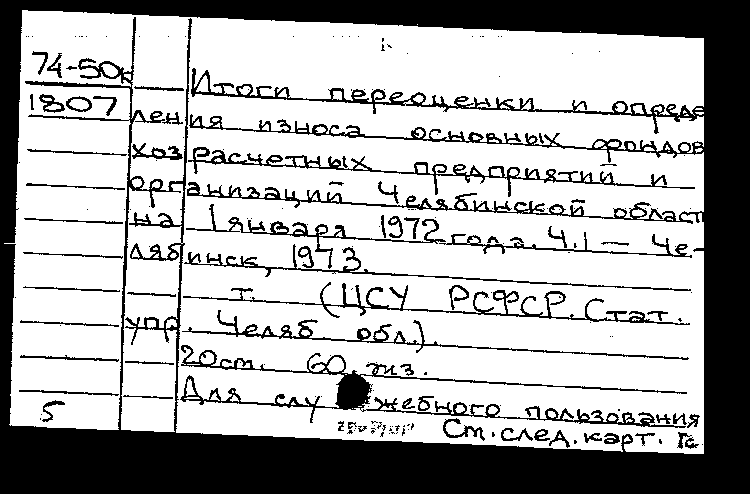 74-50к
Итоги переоценки и опреде
1807
ления износа основных фондов
хозрасчетных предприятий и
организаций Челябинской област
на 1 января 1972 года. Ч.1 — Че-
лябинск, 1973.
т. (ЦСУ РСФСР. Стат.
упр. Челяб обл.).
20 см. 60 экз.
Для служебного пользования
5 См. след. карт.